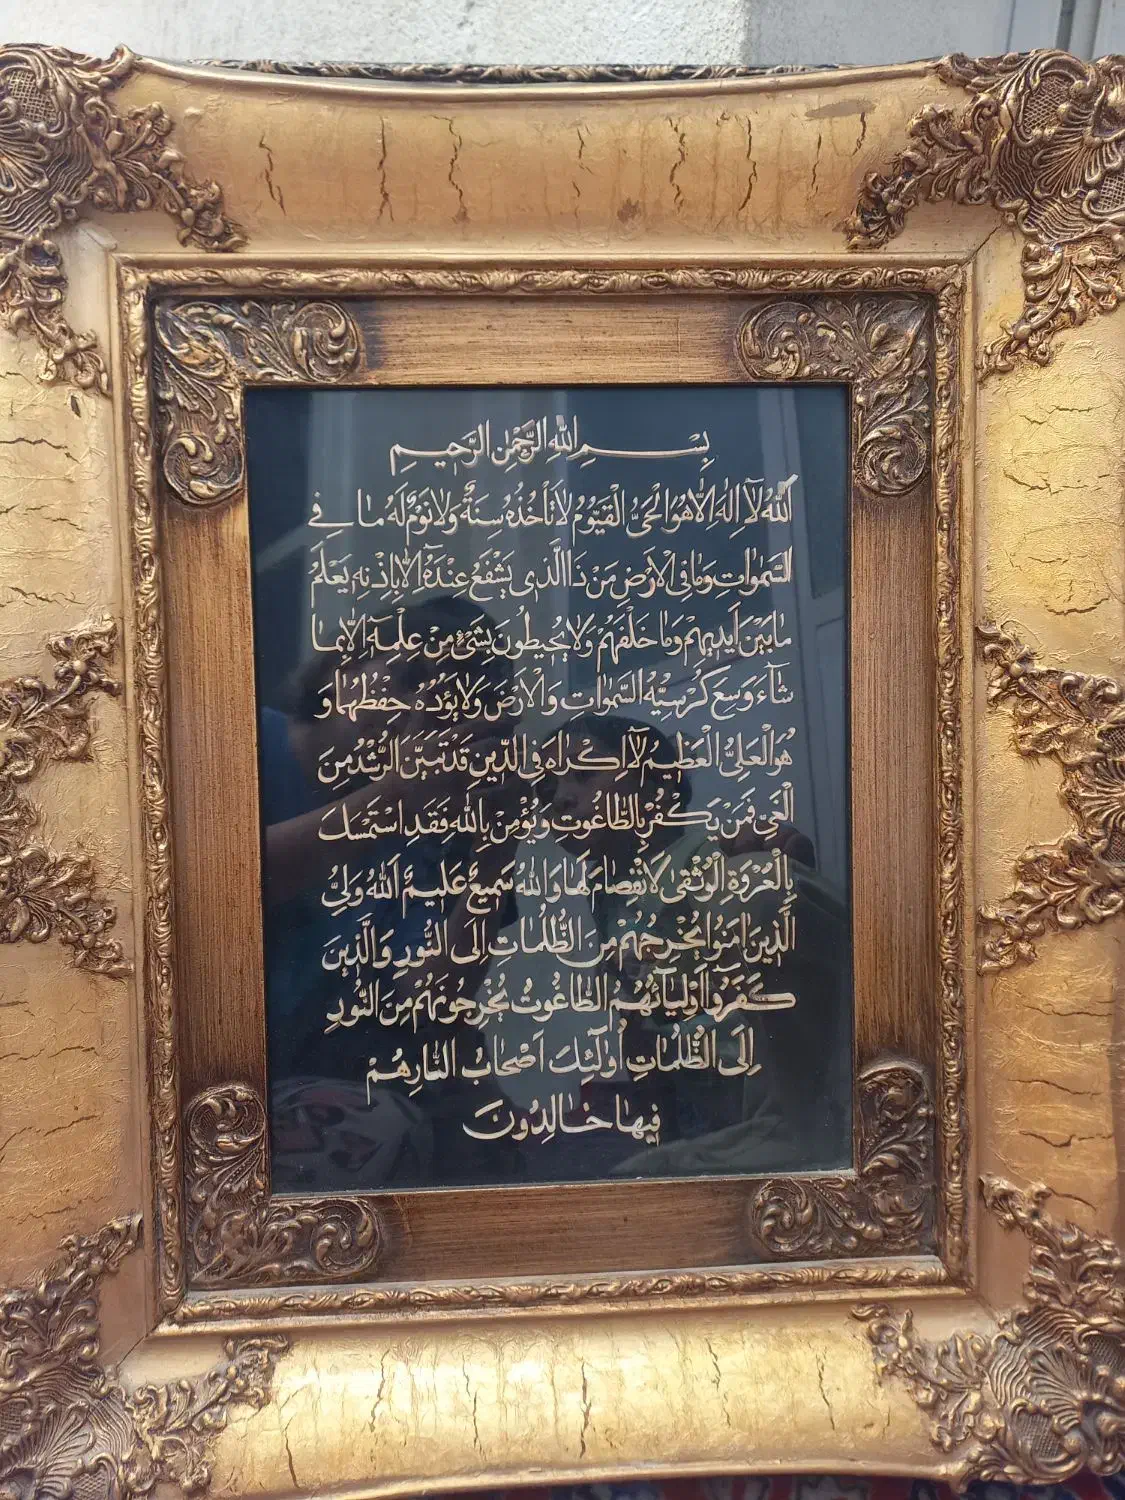 بِسْمِ اللهِ الرَّحْمٰنِ الرَّحيمِ
اَللهُ لَآ اِلٰهَ اِلَّا هُوَ الْحَيُّ الْقَيّوُمُ لَا تَأْخُذُهُ سِنَةٌ وَلَا نَوْمٌ لَهُ مَا فِي
السَّمٰوَاتِ وَمَا فِي الْاَرْضِ مَنْ ذَا الَّذي يَشْفَعُ عِنْدَهُ اِلَّا بِاِذْنِهِ يَعْلَمُ
مَا بَيْنَ اَيْديهِمْ وَمَا خَلْفَهُمْ وَلَا يُحيطُونَ بِشَيْءٍ مِنْ عِلْمِهِ اِلَّا بِمَا
شَآءَ وَسِعَ كُرْسِيُّهُ السَّمٰوَاتِ وَالْاَرْضَ وَلَا يَؤُدُهُ حِفْظُهُمَا وَ
هُوَ الْعَلِيُّ الْعَظيمُ لَآ اِكْرَاهَ فِي الدّينِ قَدْ تَبَيَّنَ الرُّشْدُ مِنَ
الْغَيِّ فَمَنْ يَكْفُرْ بِالطَّاغُوتِ وَيُؤْمِنْ بِاللهِ فَقَدِ اسْتَمْسَكَ
بِالْعُرْوَةِ الْوُثْقٰى لَا انْفِصَامَ لَهَا وَاللهُ سَميعٌ عَليمٌ اَللهُ وَلِيُّ
الَّذينَ اٰمَنُوا يُخْرِجُهُمْ مِنَ الظُّلُمَاتِ اِلَى النُّورِ وَالَّذينَ
كَفَرُوآ اَوْلِيَآئُهُمُ الطَّاغُوتُ يُخْرِجُونَهُمْ مِنَ النُّورِ
اِلَى الظُّلُمَاتِ اُولٰٓئِكَ اَصْحَابُ النَّارِ هُمْ
فيهَا خَالِدُونَ